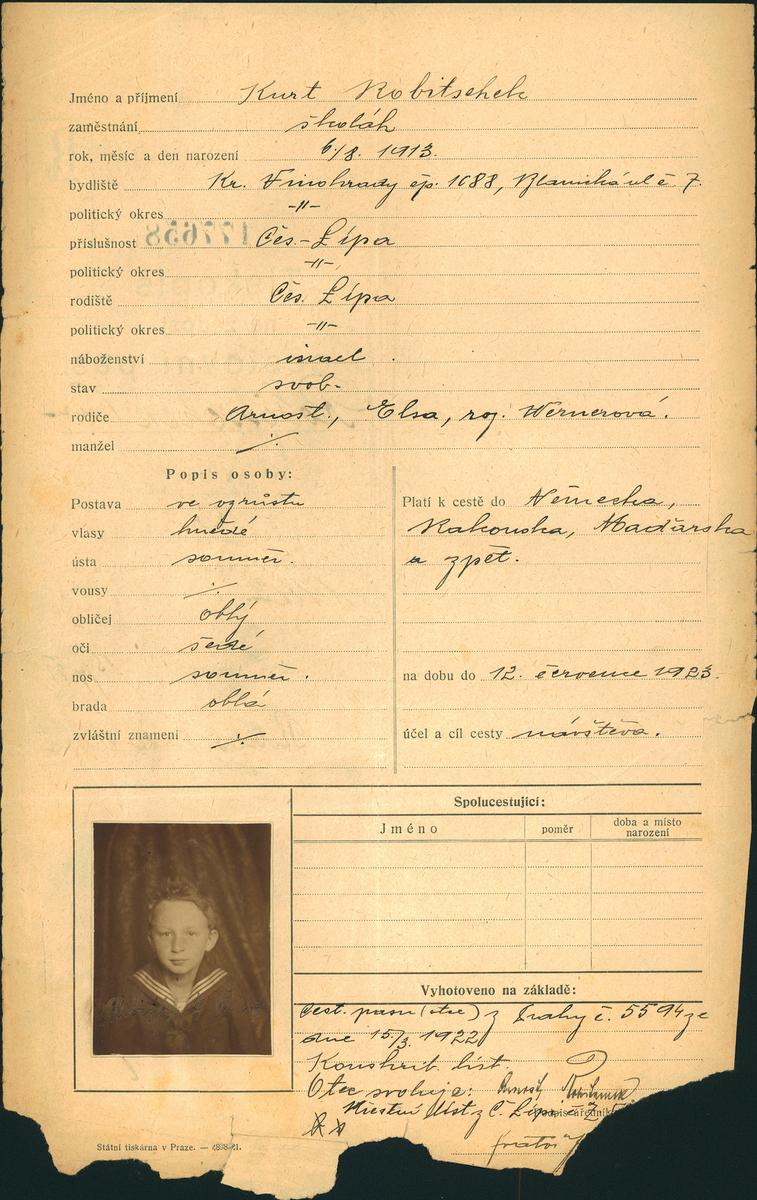 Jméno a příjmení Kurt Robitschek
zaměstnání školák
rok, měsíc a den narození 6/8. 1913.
bydliště Kr. Vinohrady čp. 1088, Blanická ul č 7.
politický okres -"-
177658
příslušnost Čes.-Lípa
politický okres -"-
rodiště Čes. Lípa
politický okres -"-
náboženství israel.
stav svob.
rodiče Arnošt, Elsa, roz. Wernerová.
manžel ./.
Popis osoby:
Postava ve vzrůstu
vlasy hnědé
ústa souměr.
vousy ./.
obličej oblý
oči šedé
nos souměr.
brada oblá
zvláštní znamení ./.
Platí k cestě do Německa,
Rakouska, Maďarska
a zpět.
na dobu do 12. července 1923.
účel a cíl cesty návštěva.
Spolucestující:
Jméno poměr doba a místo narození
Vyhotoveno na základě:
Cest. pasu (otce) z Prahy č. 5594 ze
dne 15/3. 1922
Konskrib. list.
Otec svoluje: Arnošt Robitschek
Místní úst z Č. Lípa
Podpis úředník
Státní tiskárna v Praze. —